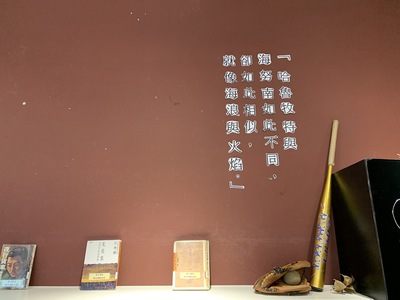 「哈魯牧特與
海努南如此不同，
卻如此相似，
就像海浪與火焰。」